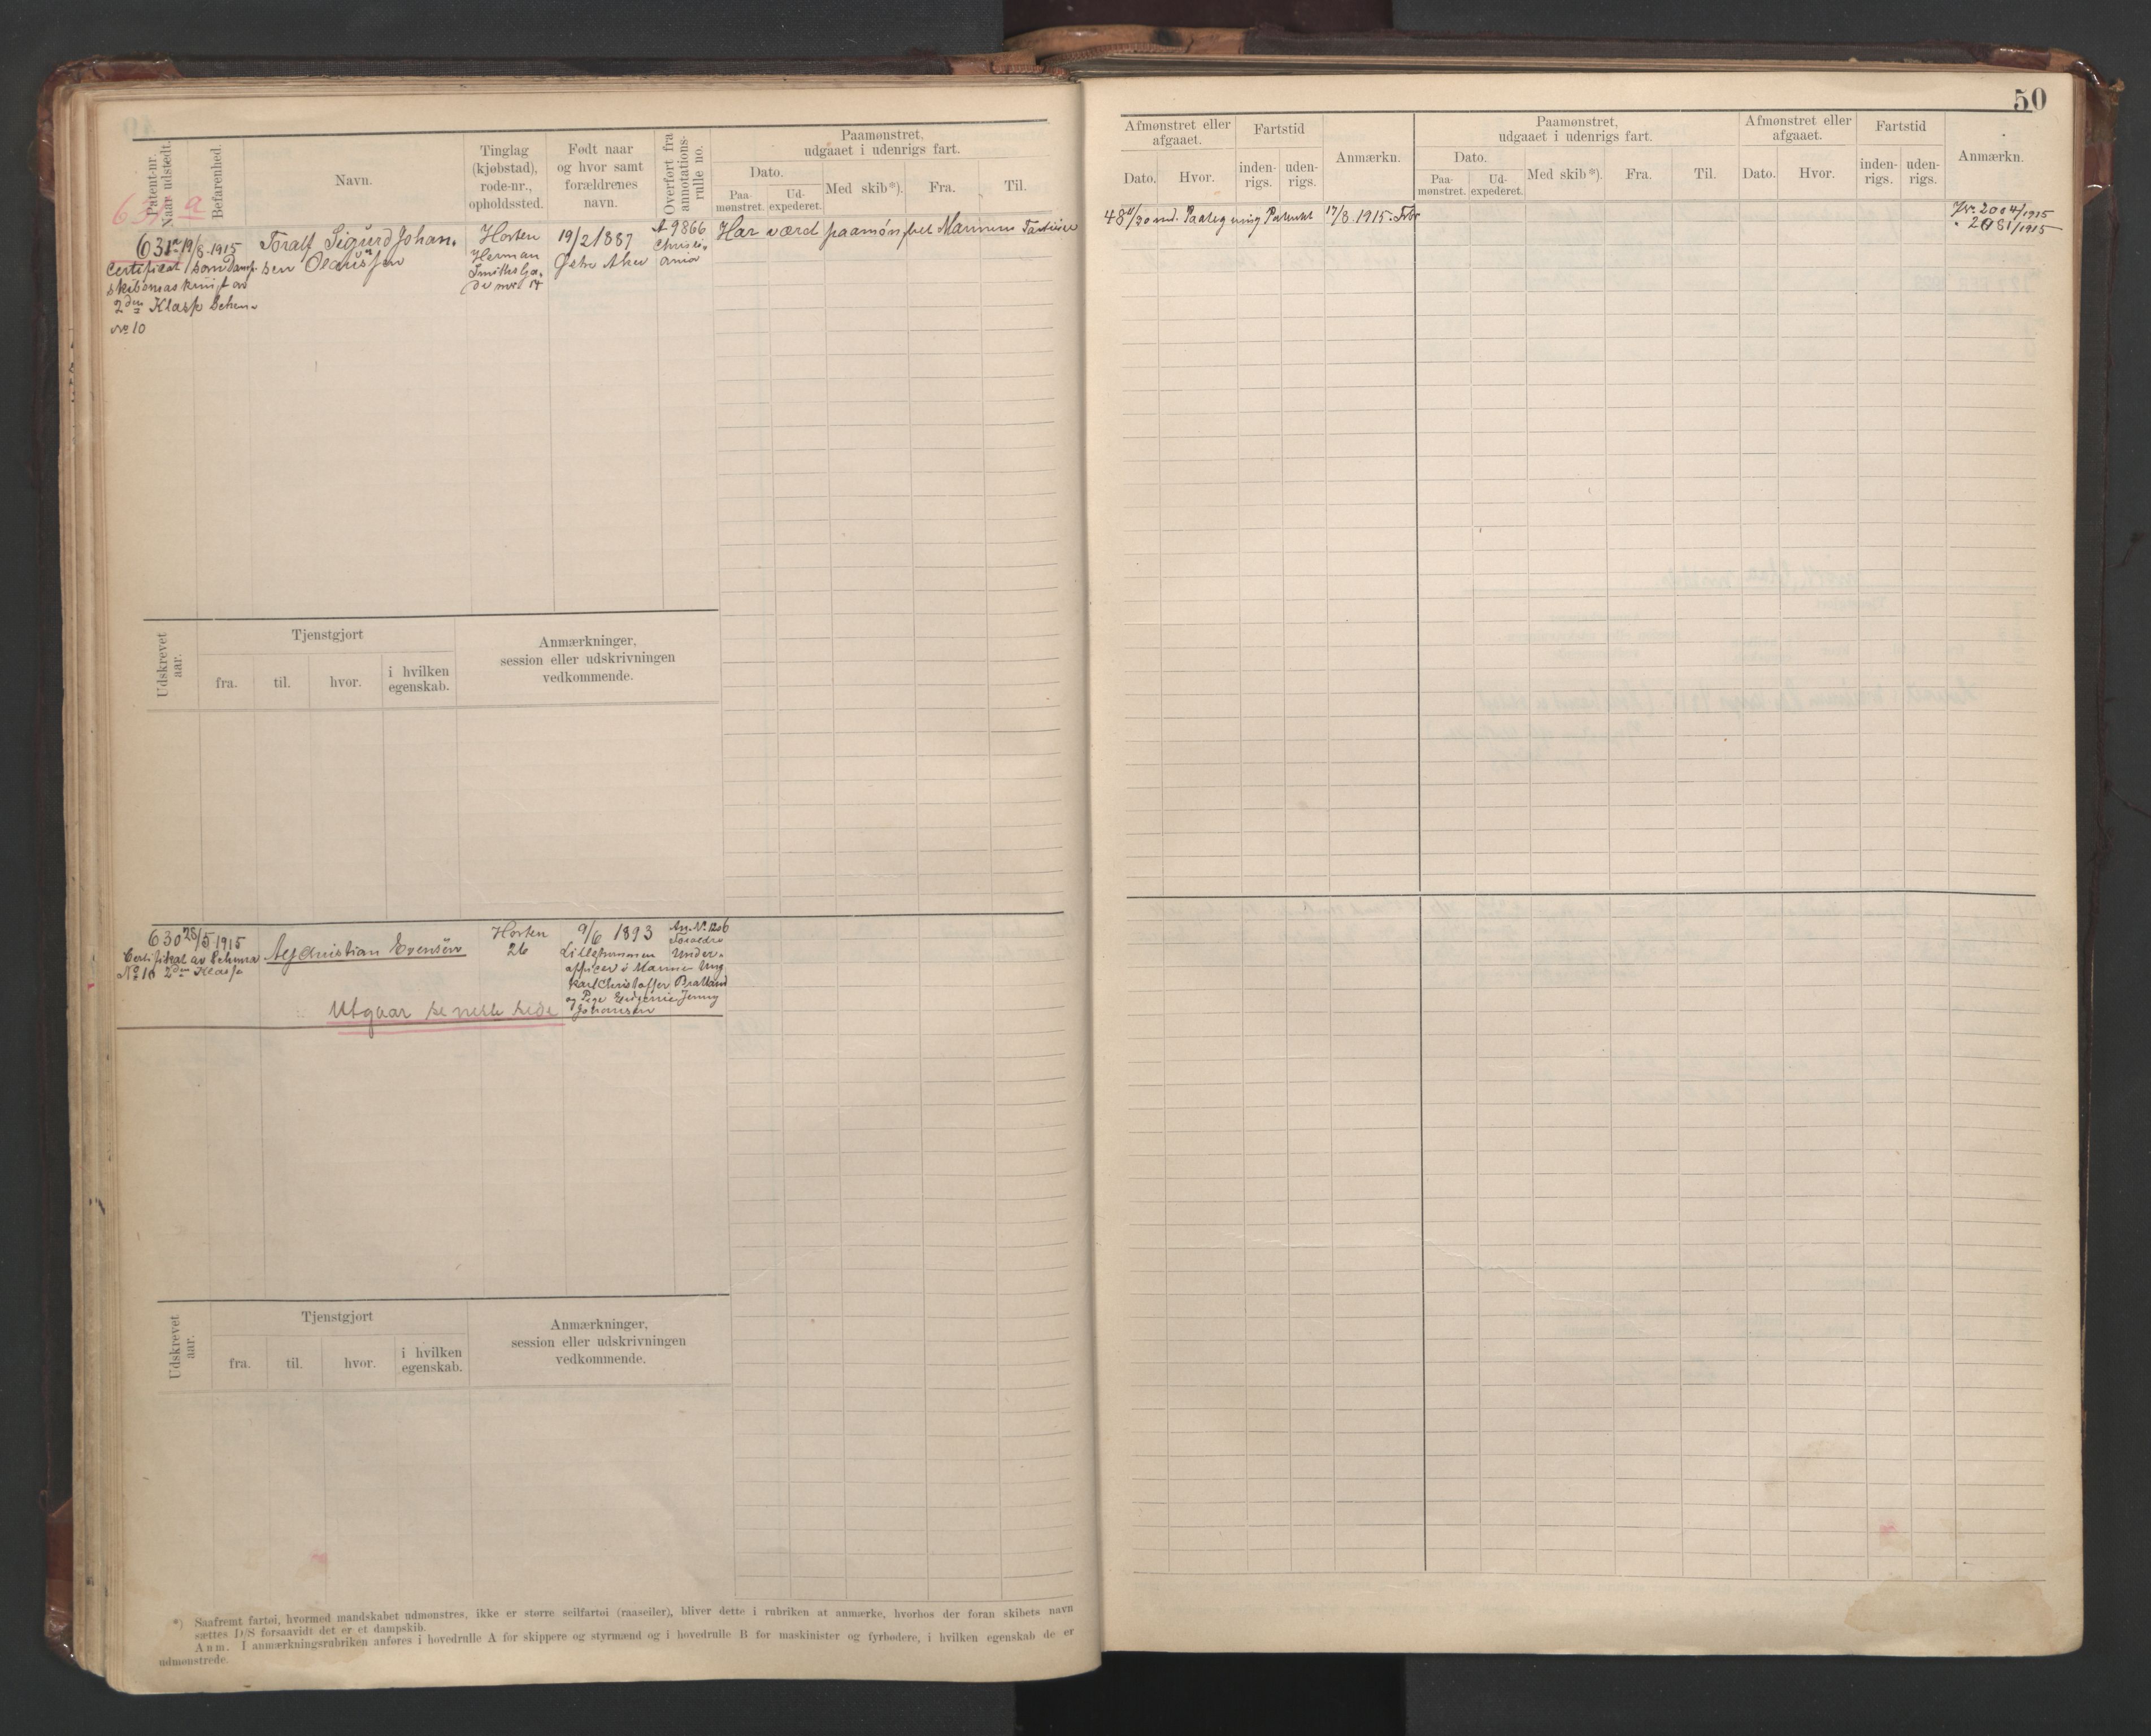 50
Patent-nr. Naar udstedt.
Befarenhed.
Navn.
Tinglag (kjøbstad), rode-nr., opholdssted.
Født naar og hvor samt forældrenes navn.
Overført fra annotations-rulle no.
Paamønstret, udgaaet i udenrigs fart.
Dato.
Paa-mønstret.
Ud-expederet.
Med skib*).
Fra.
Til.
Afmønstret eller afgaaet.
Dato.
Hvor.
Fartstid
inden-rigs.
uden-rigs.
Anmærkn.
Paamønstret, udgaaet i udenrigs fart.
Dato.
Paa-mønstret.
Ud-expederet.
Med skib*).
Fra.
Til.
Afmønstret eller afgaaet.
Dato.
Hvor.
Fartstid
inden-rigs.
uden-rigs.
Anmærkn.
631 a
631 a 19/8 1915
Certifikat som damp-
skibsmaskinist av
2den Klasse Schema
No 10
Toralf Sigurd Johan-
sen Olaussen
Horten
Herman
Smiths Ga-
de nr. 14
19/2 1887
Østre Aker
A 9866
Christi-
ania
Har værd paamønstret Marinens Fartøier
48 11/30 md. Paategning Patentet 17/8 1915.
Jnr. 2004/1915
" 2081/1915
Udskrevet aar.
Tjenstgjort
fra.
til.
hvor.
i hvilken egenskab.
Anmærkninger,
session eller udskrivningen
vedkommende.
630 28/5 1915
Certifikat av Schema
No 10 2den Klasse
Alf Christian Evensen
Horten
26
9/6 1893
Lillehammer
An. No 1206
Forældre
Under-
officer i Marinen Ung
Karl Christoffer Bratland
og Pige Eugenie Jenny
Johansen
Utgaar se neste side
Udskrevet aar.
Tjenstgjort
fra.
til.
hvor.
i hvilken egenskab.
Anmærkninger,
session eller udskrivningen
vedkommende.
*) Saafremt fartøi, hvormed mandskabet udmønstres, ikke er større seilfartøi (raaseiler), bliver dette i rubriken at anmærke, hvorhos der foran skibets navn
sættes D/S forsaavidt det er et dampskib.
Anm. I anmærkningsrubriken anføres i hovedrulle A for skippere og styrmænd og i hovedrulle B for maskinister og fyrbødere, i hvilken egenskab de er
udmønstrede.